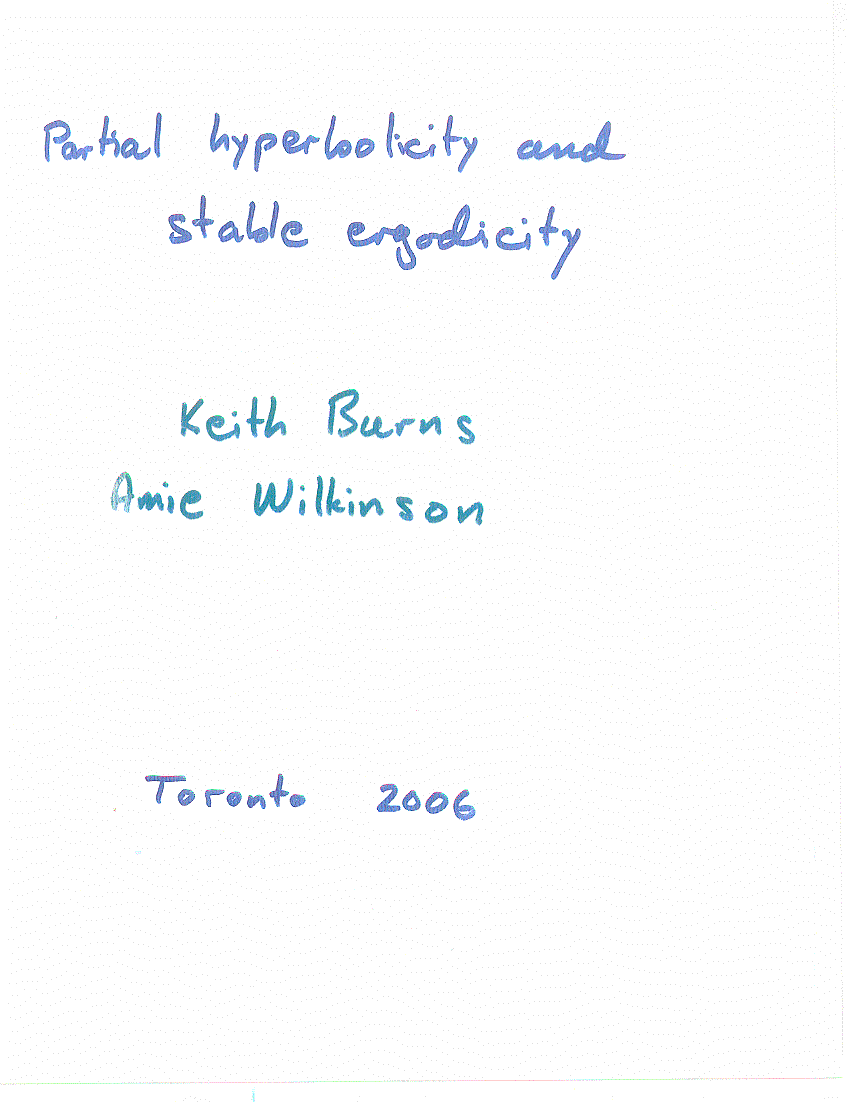 Partial hyperbolicity and
stable ergodicity
Keith Burns
Amie Wilkinson
Toronto 2006